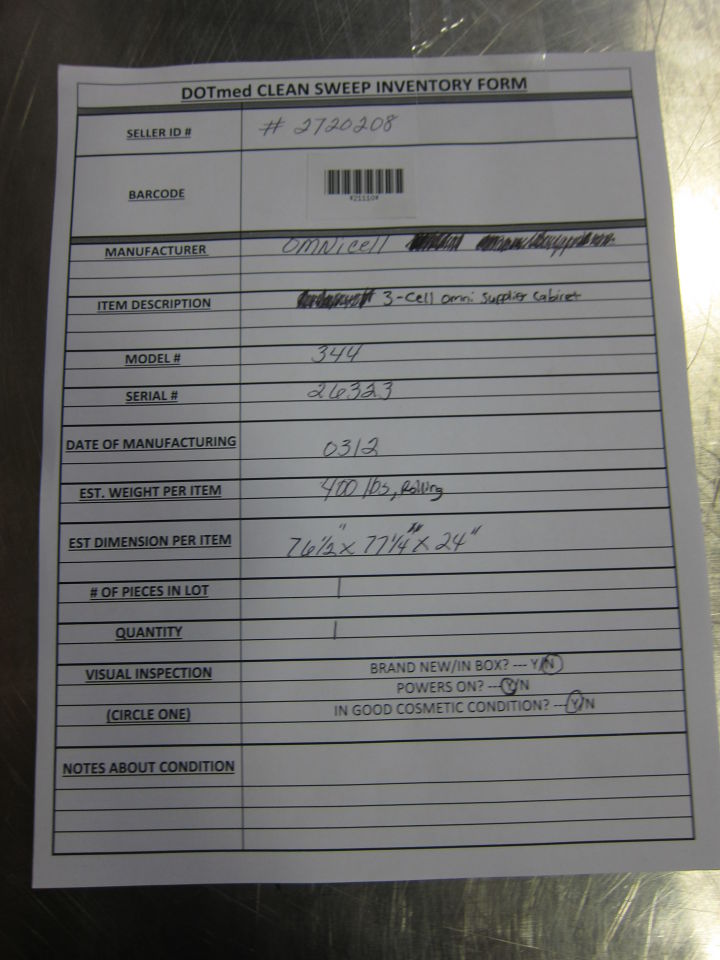 DOTmed CLEAN SWEEP INVENTORY FORM
SELLER ID # # 2720208
BARCODE
*21110*
MANUFACTURER OMNicell
ITEM DESCRIPTION 3-Cell Omni Supplier Cabinet
MODEL # 344
SERIAL # 26323
DATE OF MANUFACTURING 0312
EST. WEIGHT PER ITEM 400 lbs, Rolling
EST DIMENSION PER ITEM 76 1/2" x 77 1/4" x 24"
# OF PIECES IN LOT 1
QUANTITY 1
VISUAL INSPECTION BRAND NEW/IN BOX? --- Y/N
POWERS ON? ---Y/N
(CIRCLE ONE) IN GOOD COSMETIC CONDITION? ---Y/N
NOTES ABOUT CONDITION